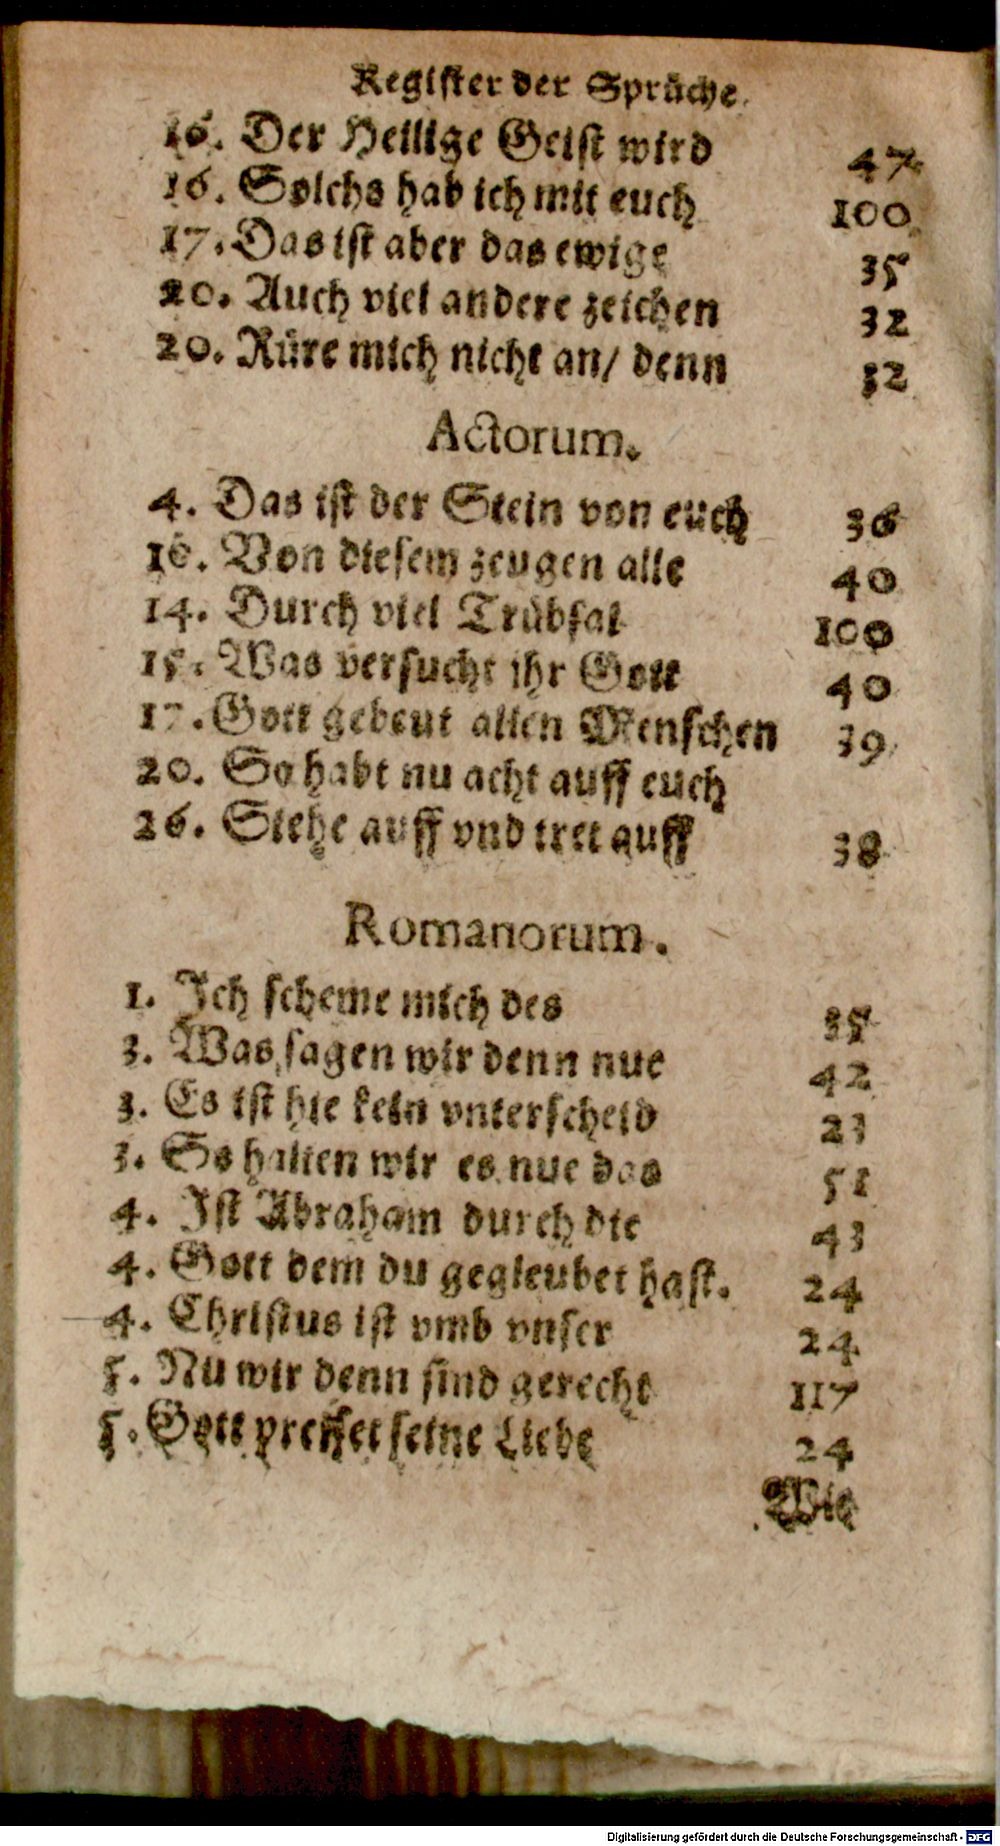 Register der Sprüche.
16. Der Heilige Geist wird 47
16. Solchs hab ich mit euch 100
17. Das ist aber das ewige 35
20. Auch viel andere zeichen 32
20. Rüre mich nicht an/ denn 32
Actorum.
4. Das ist der Stein von euch 36
10. Von diesem zeugen alle 40
14. Durch viel Trübsal 100
15. Was versucht ihr Gott 40
17. Gott gebeut allen Menschen 39
20. So habt nu acht auff euch
26. Stehe auff vnd tret auff 38
Romanorum.
1. Ich scheme mich des 35
3. Was sagen wir denn nue 42
3. Es ist hie kein vnterscheid 23
3. So halten wir es nue das 51
4. Ist Abraham durch die 43
4. Gott dem du gegleubet hast. 24
4. Christus ist vmb vnser 24
5. Nu wir denn sind gerecht 117
5. Gott preiset seine Liebe 24
Wie
Digitalisierung gefördert durch die Deutsche Forschungsgemeinschaft - DFG